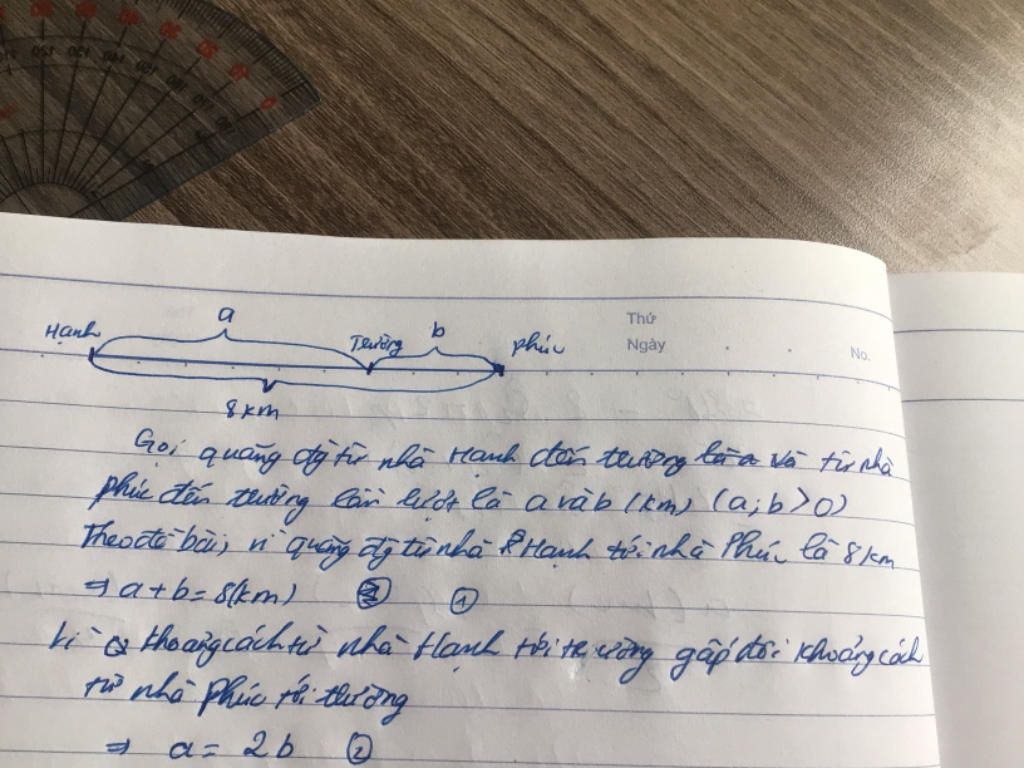 a
Hạnh Trường b Phúc
8 km
Thứ
Ngày
No.
Gọi quãng đg từ nhà Hạnh đến trường là a và từ nhà
Phúc đến trường lần lượt là a và b (km) (a; b > 0)
Theo đề bài, vì quãng đg từ nhà Hạnh tới nhà Phúc là 8 km
⇒ a + b = 8 (km) ①
Vì khoảng cách từ nhà Hạnh tới trường gấp đôi khoảng cách
từ nhà Phúc tới trường
⇒ a = 2b ②